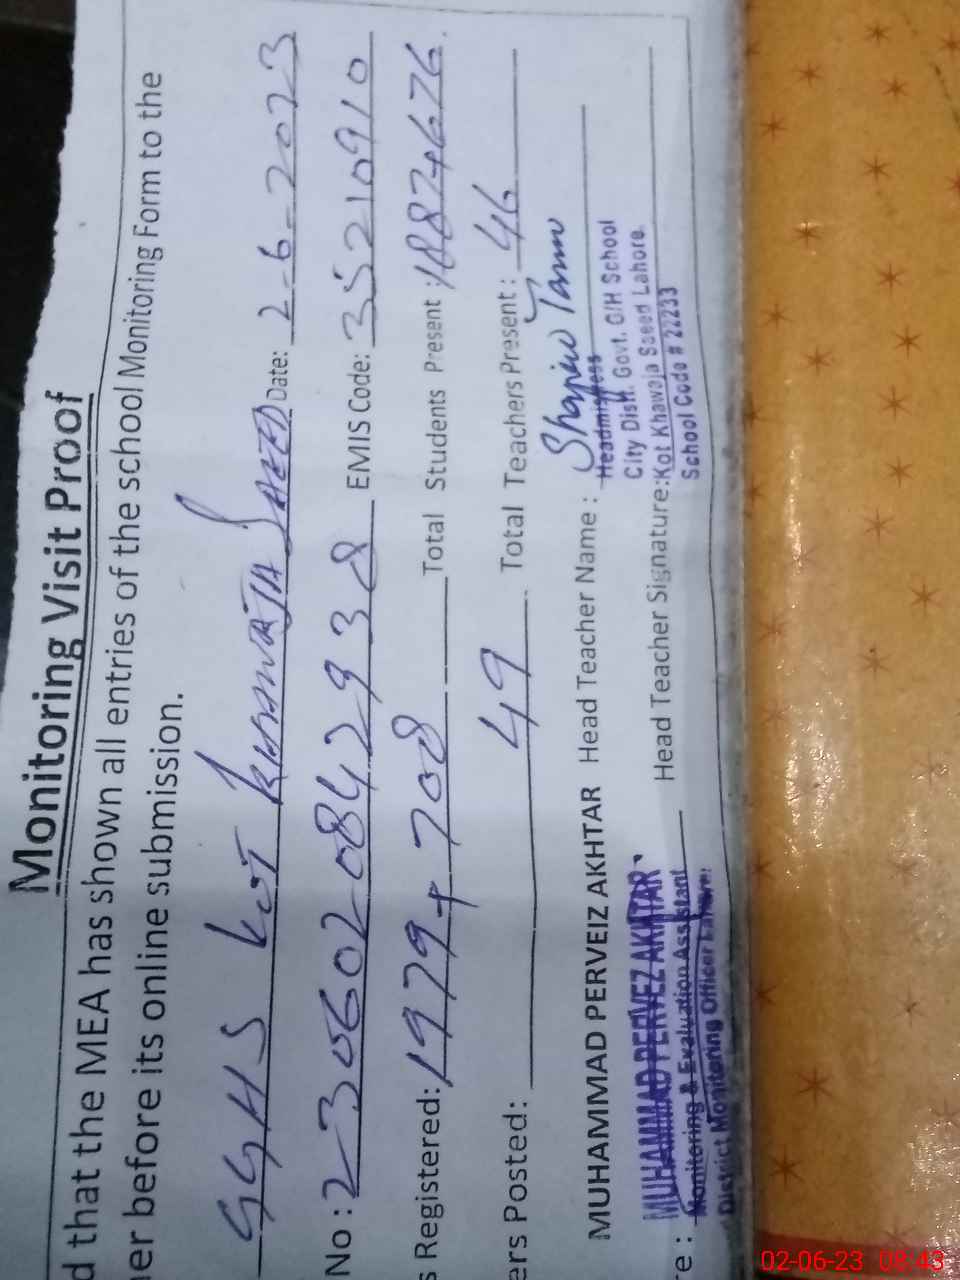 Monitoring Visit Proof
d that the MEA has shown all entries of the school Monitoring Form to the
er before its online submission.
GGHS KOT KHAWAJA SAEED Date: 2-6-2023
No : 2306020842938 EMIS Code: 35210910
s Registered: 1979+708 Total Students Present : 1887+676
ers Posted: 49 Total Teachers Present : 46
MUHAMMAD PERVEIZ AKHTAR Head Teacher Name :
Headmistress
City Distt. Govt. G/H School
re : Head Teacher Signature: Kot Khawaja Saeed Lahore.
School Code # 22233
MUHAMMAD PERVEZ AKHTAR
Monitoring & Evaluation Assistant
District Monitoring Officer Lahore
02-06-23 08:43